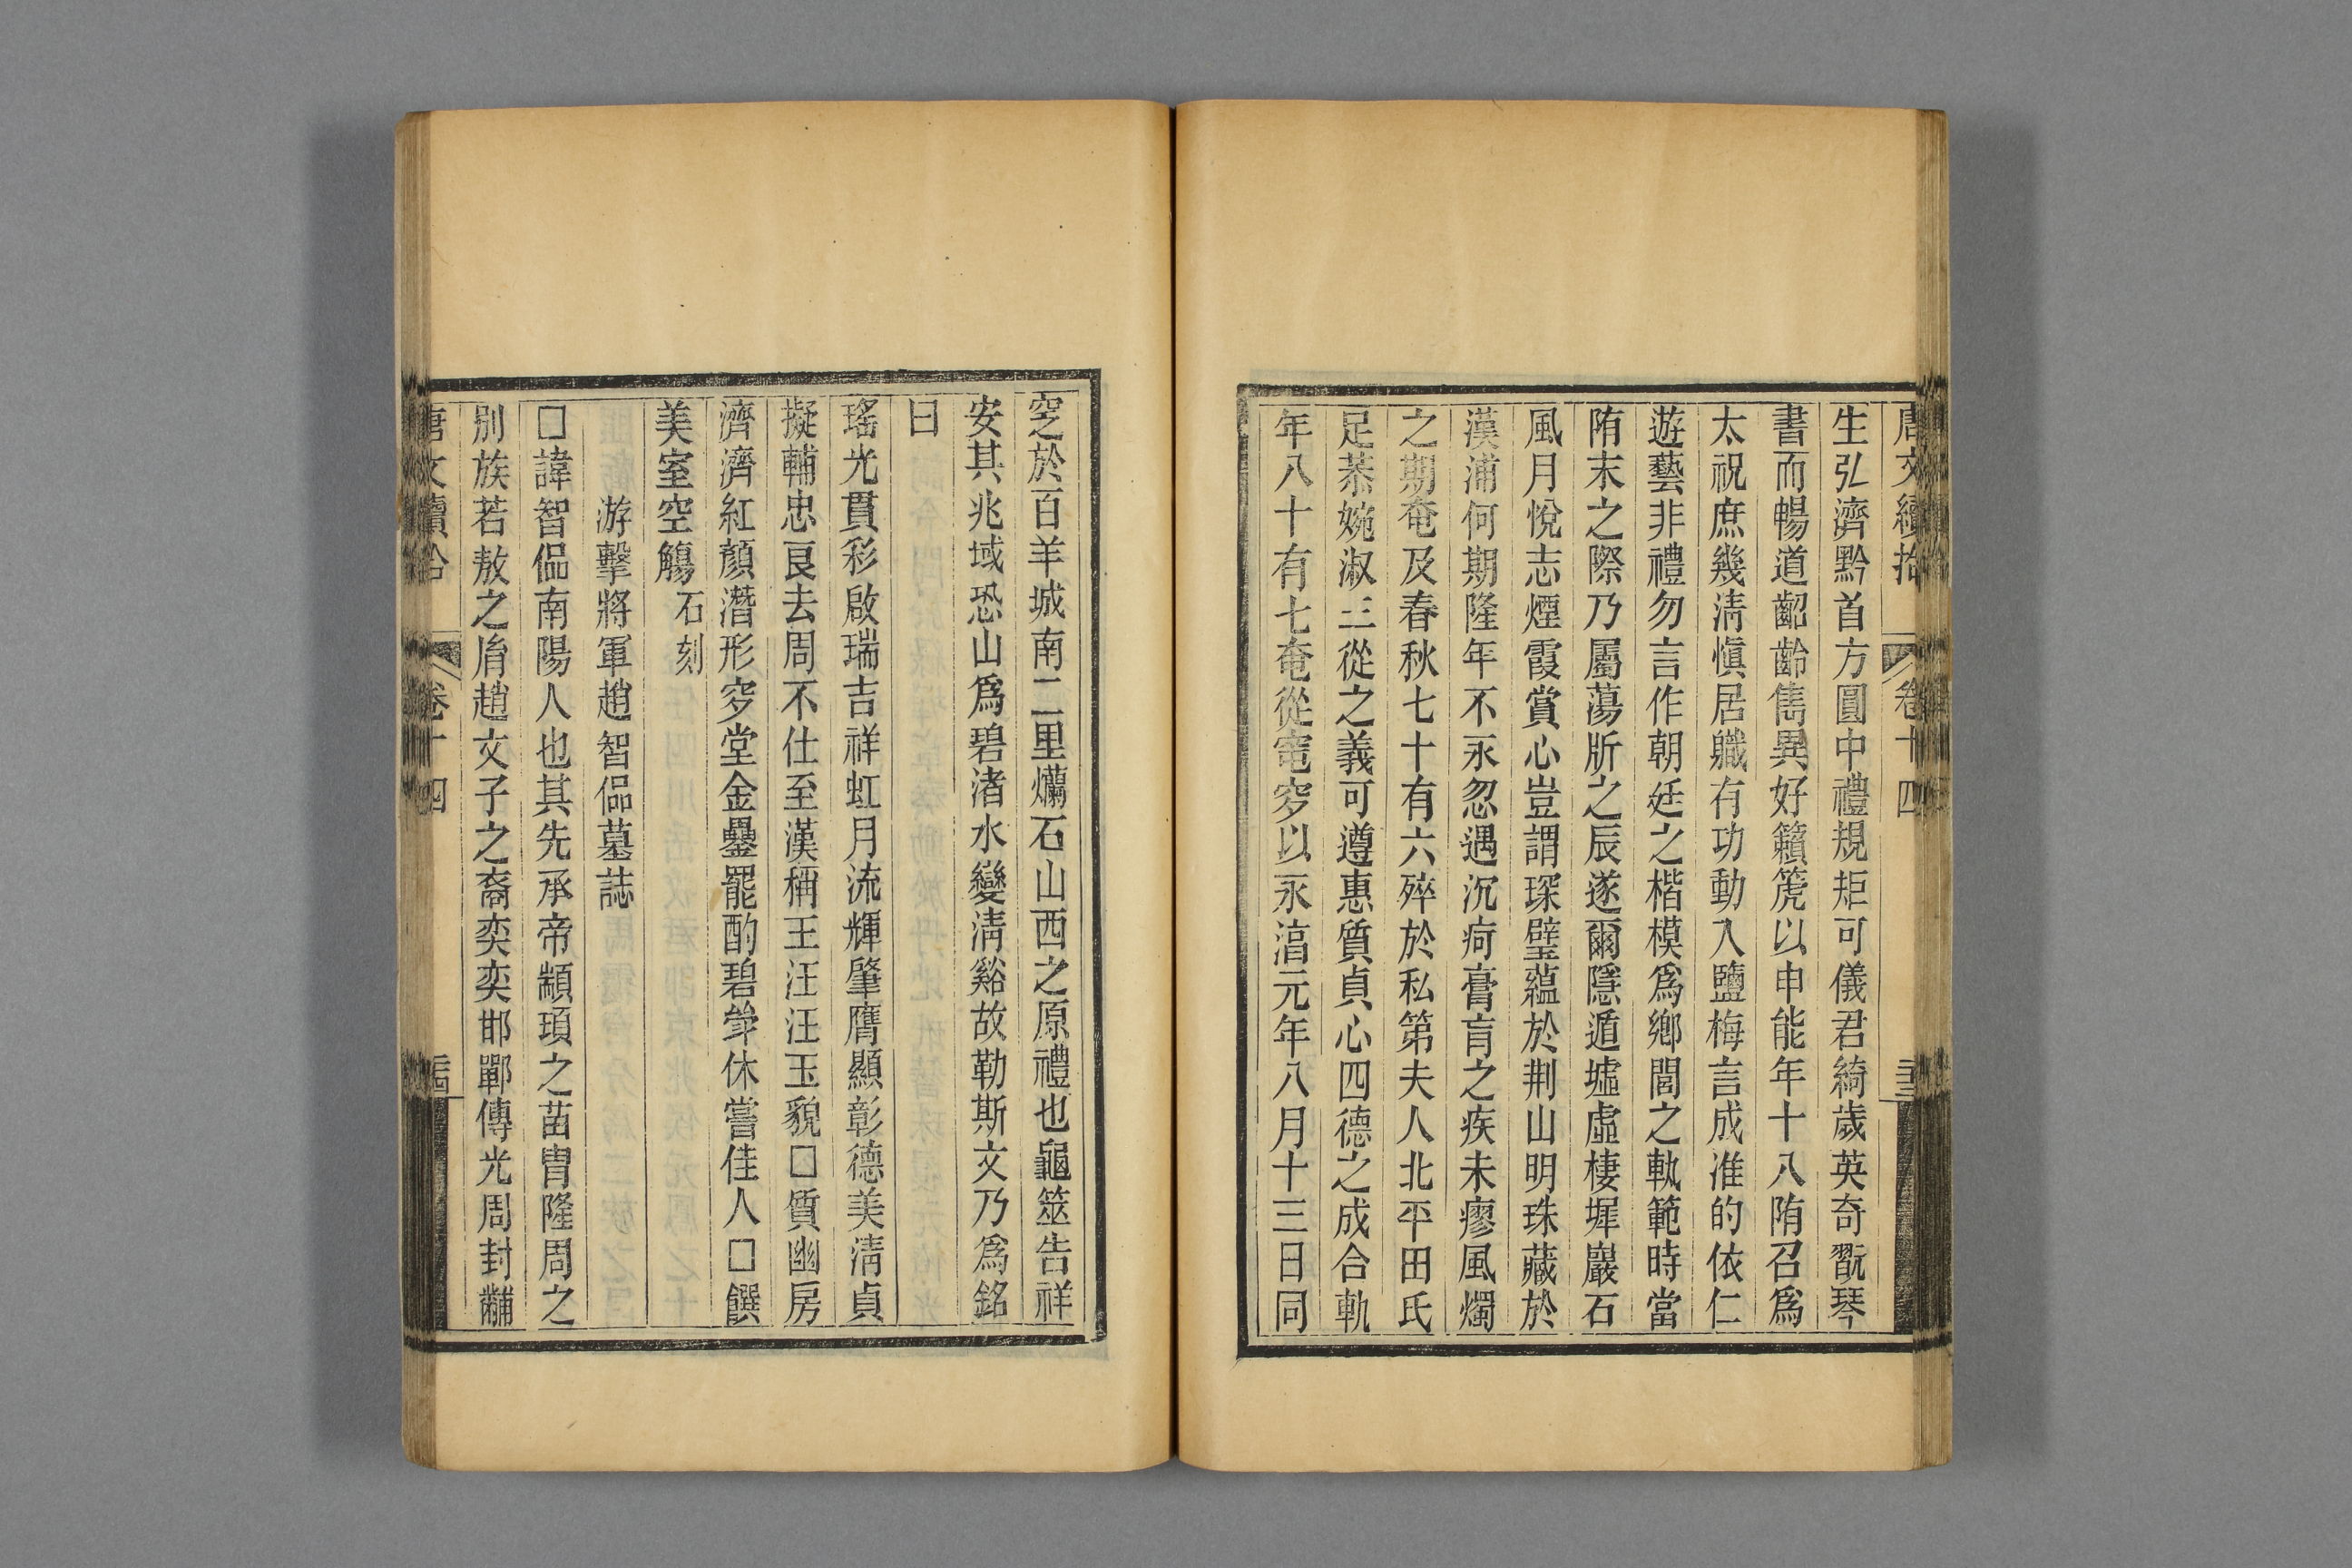 唐文續拾 卷十四
生弘濟黔首方圓中禮規矩可儀君綺歲英奇翫琴
書而暢道齠齡雋異好籟箎以申能年十八隋召爲
太祝庶幾清愼居職有功動入鹽梅言成准的依仁
遊藝非禮勿言作朝廷之楷模爲鄉閭之軌範時當
隋末之際乃屬蕩斨之辰遂爾隱遁墟虛棲墀巖石
風月悅志煙霞賞心豈謂琛璧蘊於荆山明珠藏於
漢浦何期隆年不永忽遇沉疴膏肓之疾未瘳風燭
之期奄及春秋七十有六殞於私第夫人北平田氏
足恭婉淑三從之義可遵惠質貞心四德之成合軌
年八十有七奄從窀穸以永淳元年八月十三日同
窆於百羊城南二里爛石山西之原禮也龜筮告祥
安其兆域恐山爲碧渚水變清谿故勒斯文乃爲銘
曰
瑤光貫彩啟瑞吉祥虹月流輝肇膺顯彰德美清貞
擬輔忠良去周不仕至漢稱王汪汪玉貌□質幽房
濟濟紅顏潛形穸堂金罍罷酌碧斝休嘗佳人□饌
美室空觴 石刻
游擊將軍趙智偘墓誌
□諱智偘南陽人也其先承帝顓頊之苗胄隆周之
別族若敖之胤趙文子之裔奕奕邯鄲傳光周封黼
唐文續拾 卷十四